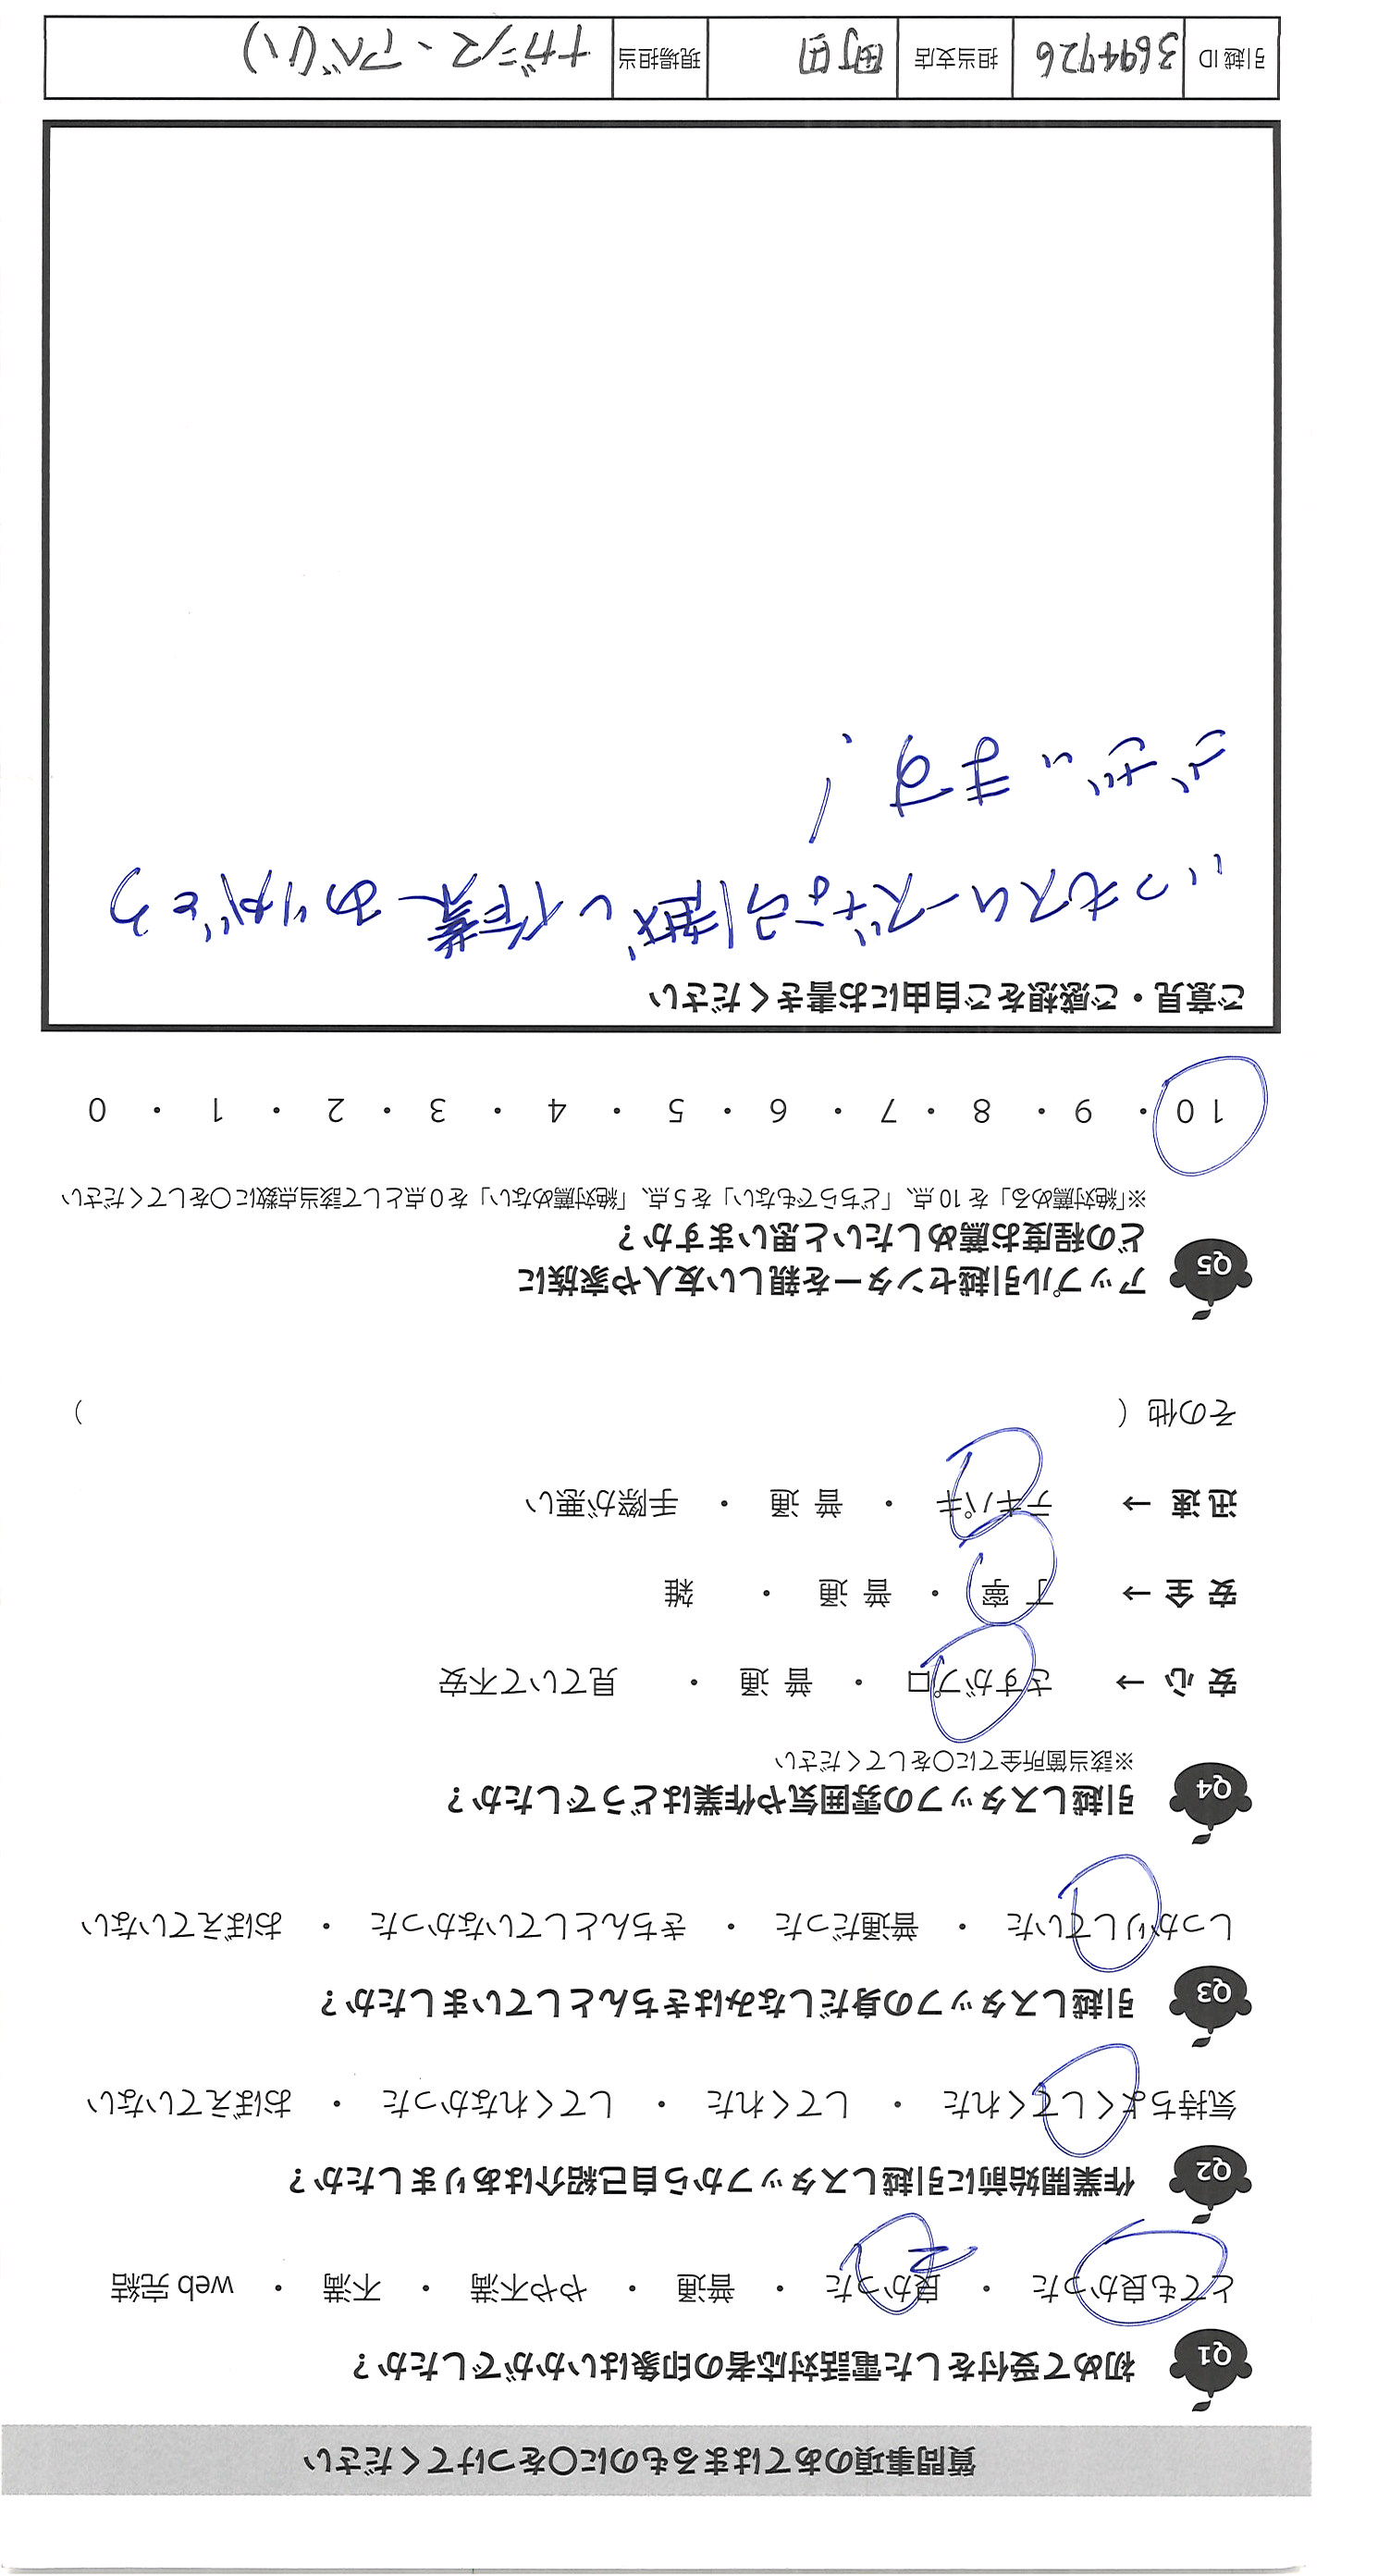 質問事項のあてはまるものに○をつけてください
Q1 初めて受付をした電話対応者の印象はいかがでしたか？
とても良かった ・ 良かった ・ 普通 ・ やや不満 ・ 不満 ・ web 完結
Q2 作業開始前に引越しスタッフから自己紹介はありましたか？
気持ちよくしてくれた ・ してくれた ・ してくれなかった ・ おぼえていない
Q3 引越しスタッフの身だしなみはきちんとしていましたか？
しっかりしていた ・ 普通だった ・ きちんとしていなかった ・ おぼえていない
Q4 引越しスタッフの雰囲気や作業はどうでしたか？
※該当箇所全てに○をしてください
安 心 → さすがプロ ・ 普 通 ・ 見ていて不安
安 全 → 丁 寧 ・ 普 通 ・ 雑
迅 速 → テキパキ ・ 普 通 ・ 手際が悪い
その他（ ）
Q5 アップル引越センターを親しい友人や家族に
どの程度お薦めしたいと思いますか？
※「絶対薦める」を 10 点、「どちらでもない」を 5 点、「絶対薦めない」を 0 点として該当点数に○をしてください
10 ・ 9 ・ 8 ・ 7 ・ 6 ・ 5 ・ 4 ・ 3 ・ 2 ・ 1 ・ 0
ご意見・ご感想をご自由にお書きください
いつもスムーズな引越し作業ありがとう
ございます！
引越 ID 3694726 担当支店 町田 現場担当 ナガシマ、アベ(い)